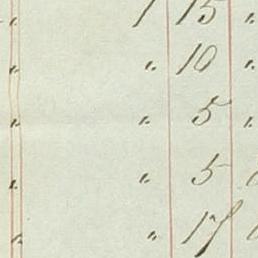 " 1 15 "
" " 10 "
" " 5 "
" " 5
" " 17